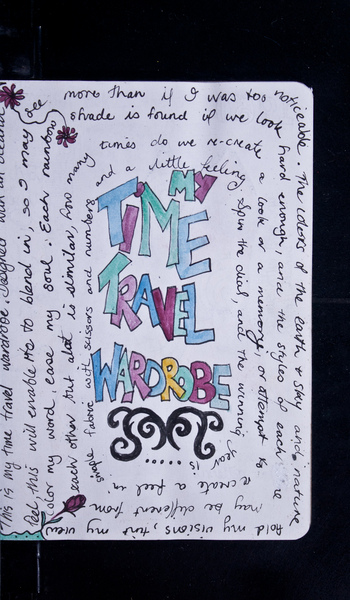 This is my time travel wardrobe. Designed with an
feel this will enable me to blend in, so I may see
more than if I was too noticeable. The colors of the earth & sky and nature
hold my visions, tint my view
color my word, ease my soul. Each rainbow
shade is found if we look hard enough, and the styles of each
may be different from
each other but alot is similar, how many
times do we re-create a look or a memory, or attempt to
re create a feel in
simple fabric with scissors and numbers
and a little feeling
Spin the dial, and the winning year is .....
MY
TIME
TRAVEL
WARDROBE